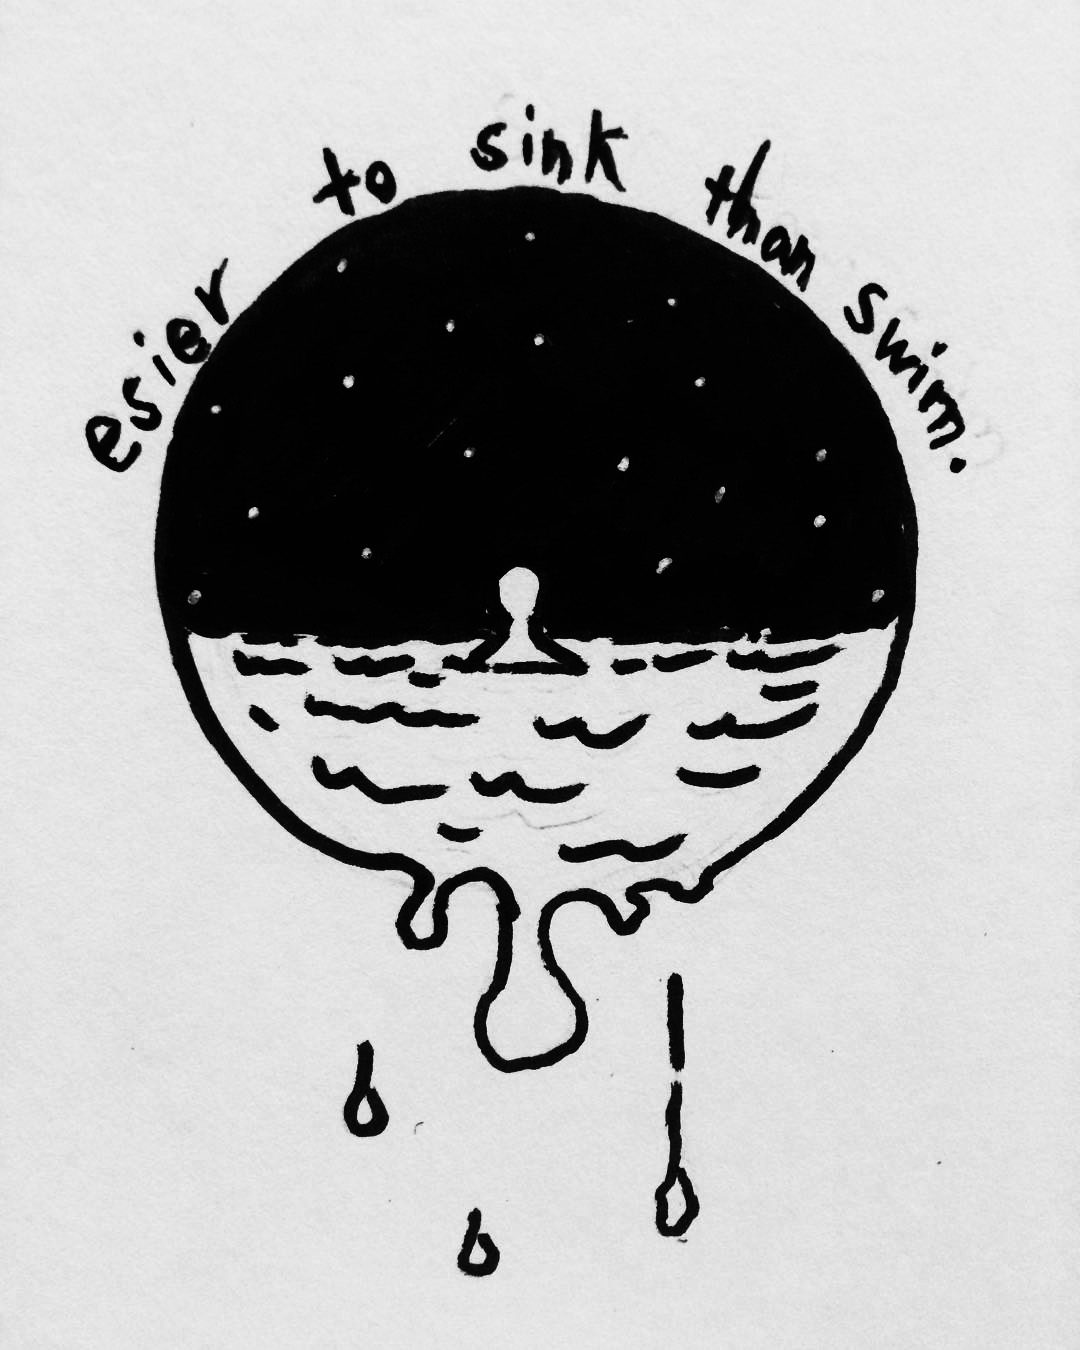 esier to sink than swim.